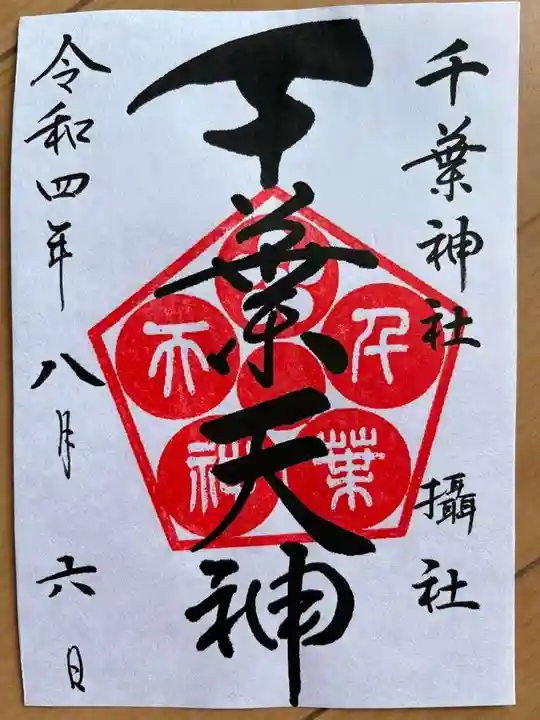 千葉神社 攝社
千葉天神
令和四年八月六日
千
葉
神
天